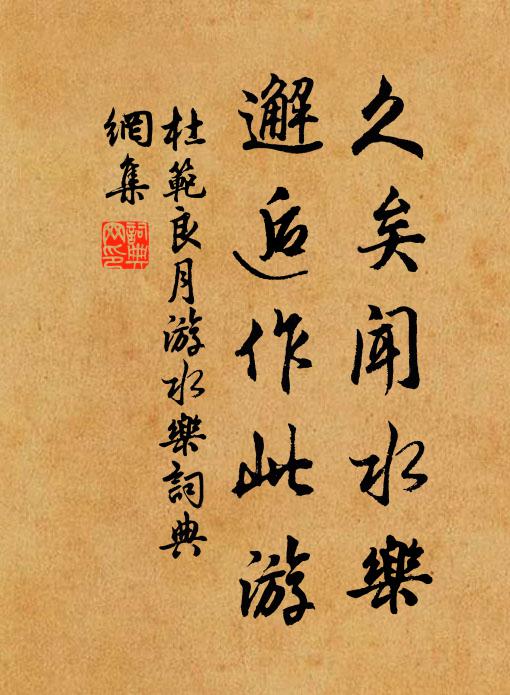 久矣聞水樂
邂逅作此游
杜範良月游水樂詞典
網集
詞典
网印